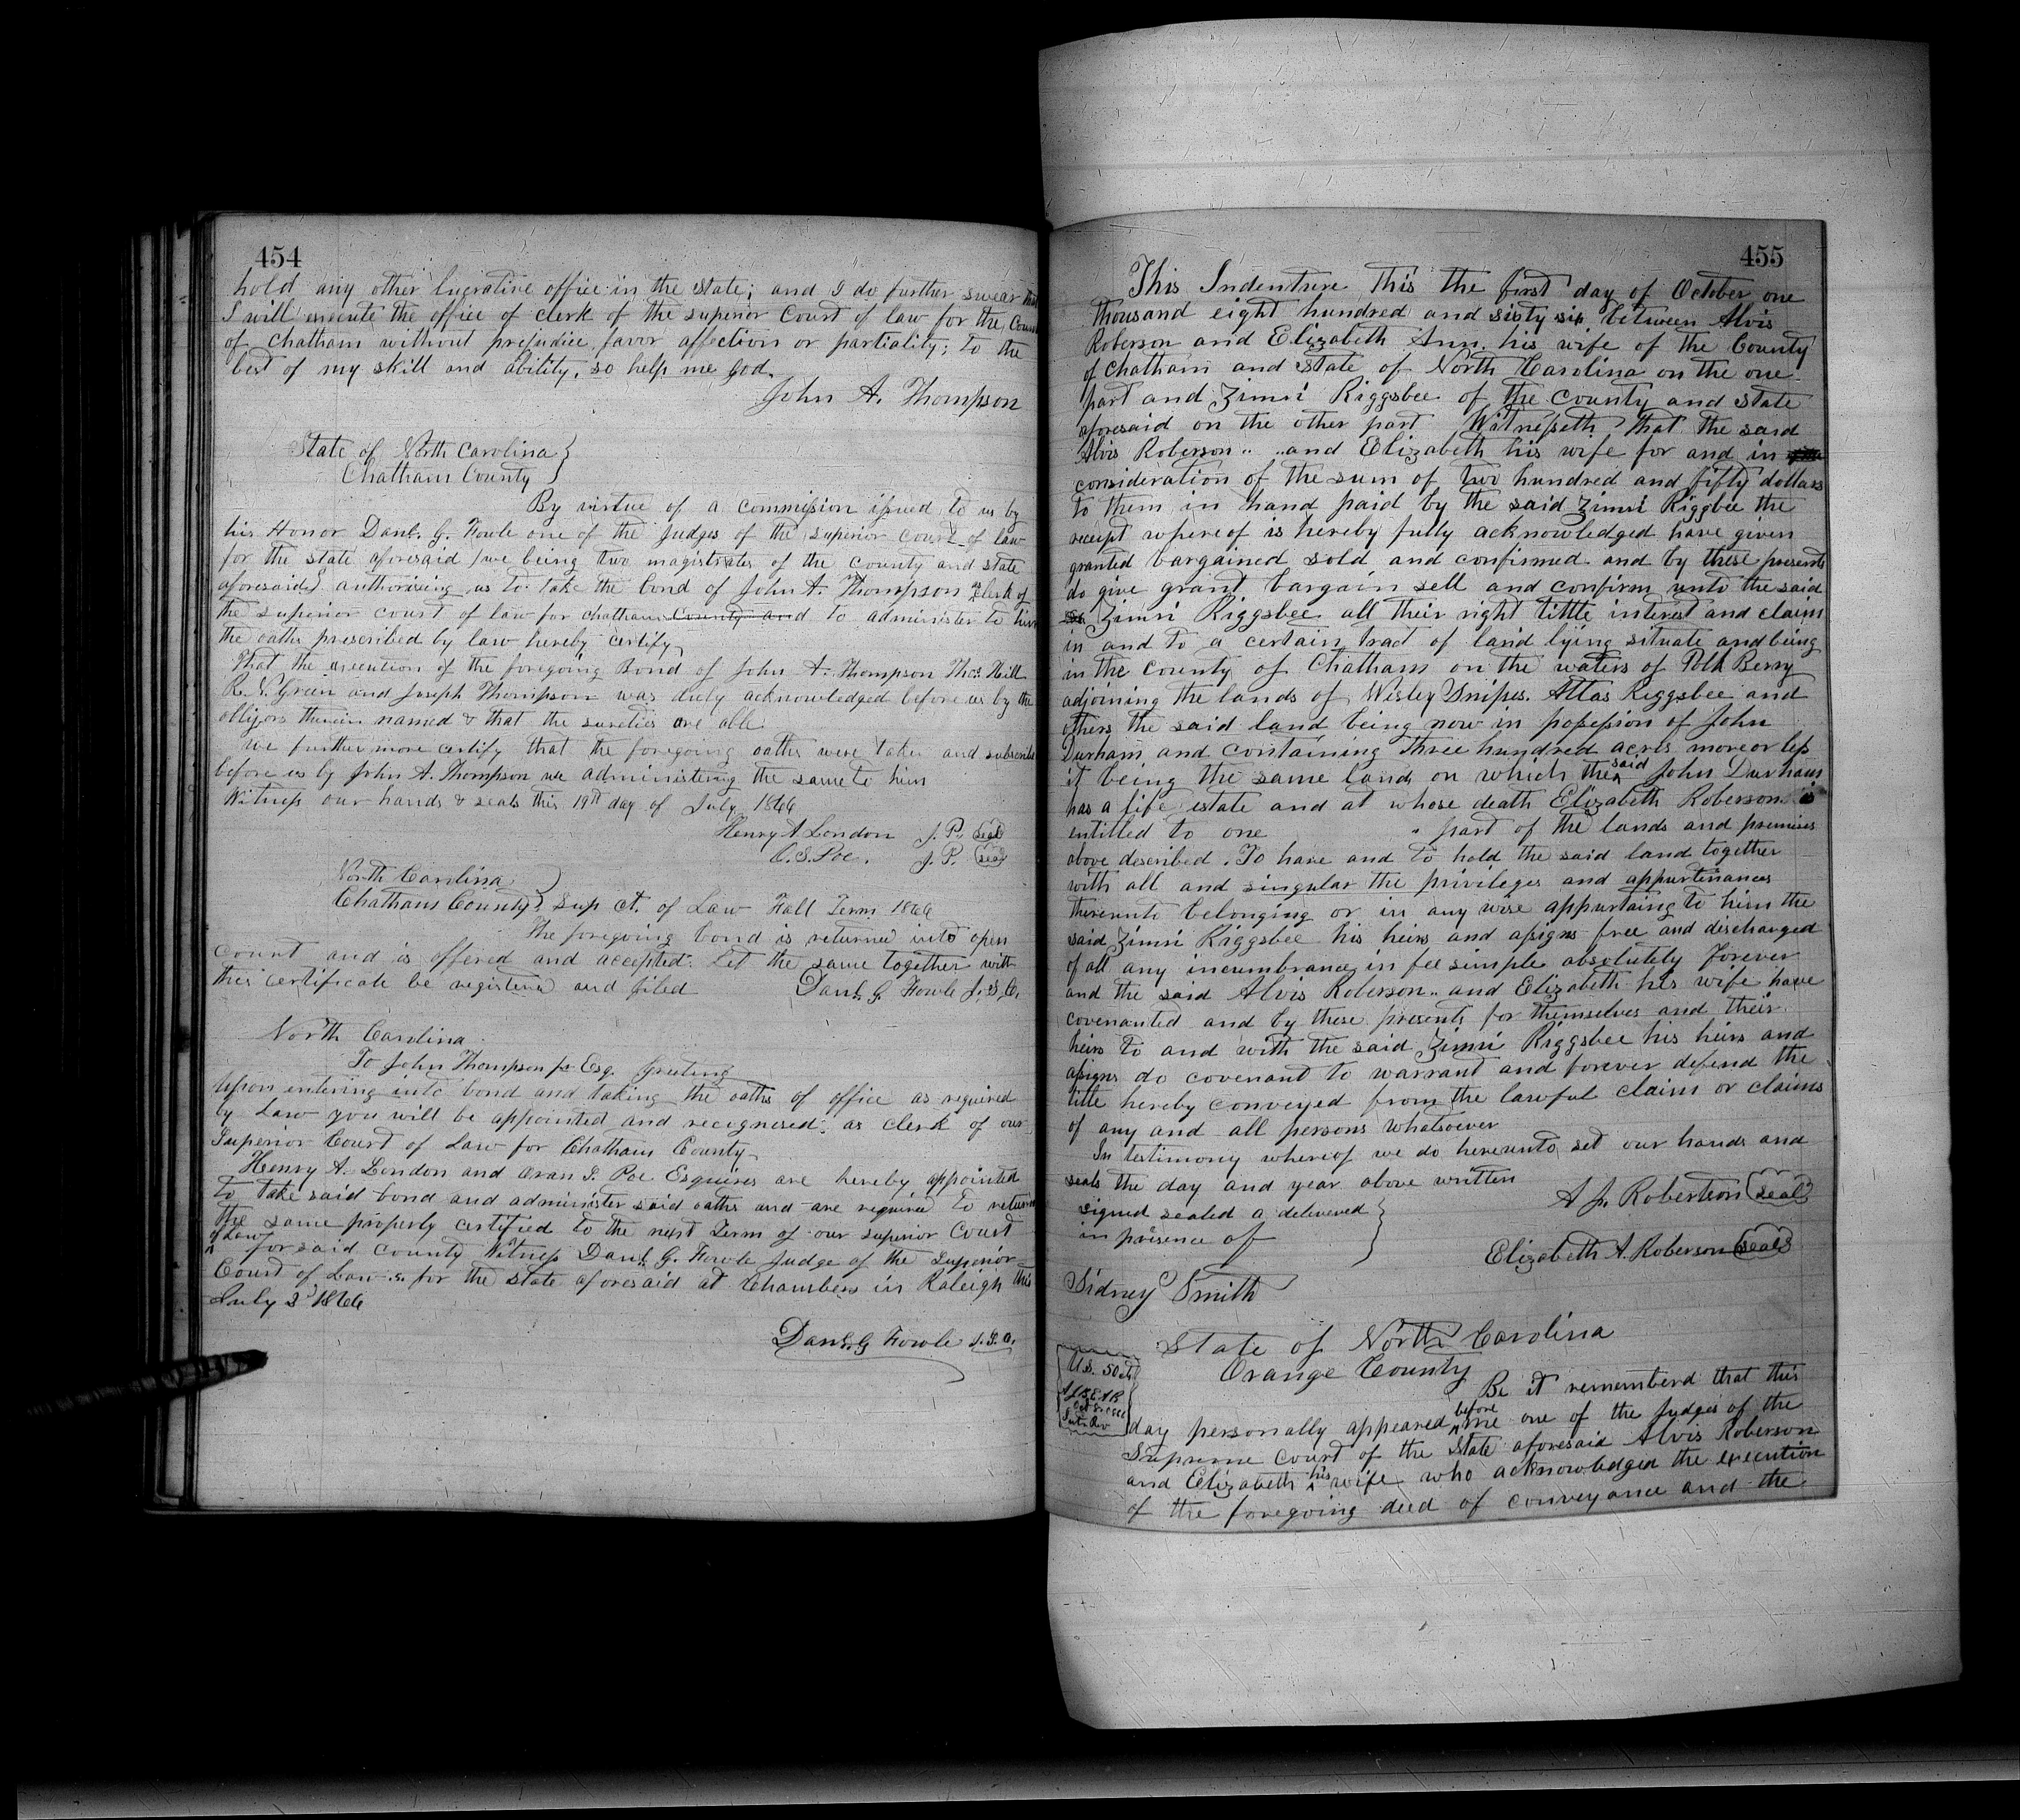 454
hold any other lucrative office in the state; and I do further swear that
I will execute the office of clerk of the superior Court of law for the Coun
of Chatham without prejudice, favor affection or partiality; to the
best of my skill and ability, so help me God.
John A. Thompson
State of North Carolina
Chatham County
By virtue of a commission issued to us by
his Honor Danl. G. Fowle one of the Judges of the superior court of law
for the state aforesaid (we being two magistrates of the county and state
aforesaid) authorising us to take the bond of John A. Thompson as clerk of
the superior court of law for chatham County and to administer to him
the oaths prescribed by law hereby certify
That the execution of the foregoing Bond of John A. Thompson Thos. Hill
R. N. Green and Joseph Thompson was duly acknowledged before us by the
obligors therein named & that the sureties are able
We furthermore certify that the foregoing oaths were taken and subscribed
before us by John A. Thompson we administering the same to him
Witness our hands & seals this 19th day of July 1866
Henry A London J. P. seal
O. S. Poe. J. P. seal
North Carolina
Chatham County Sup Ct. of Law Fall Term 1866
The foregoing bond is returned into open
Court and is offered and accepted. Let the same together with
this certificate be registered and filed Danl. G. Fowle J. S. C.
North Carolina
To John Thompson Esq. Greeting
Upon entering into bond and taking the oaths of office as required
by Law you will be appointed and recognised as clerk of our
Superior Court of Law for Chatham County
Henry A. London and Oran S. Poe Esquires are hereby appointed
to take said bond and administer said oaths and are required to return
the same properly certified to the next Term of our superior Court
of Law for said county Witness Danl. G. Fowle Judge of the Superior
Court of Law for the state aforesaid at Chambers in Raleigh this
July 2d 1866
Danl. G Fowle J. S. C.
455
This Indenture this the first day of October one
thousand eight hundred and sixty six between Alvis
Roberson and Elizabeth Ann his wife of the County
of Chatham and State of North Carolina on the one
part and Zimri Riggsbee of the County and State
aforesaid on the other part Witnesseth that the said
Alvis Roberson and Elizabeth his wife for and in
consideration of the sum of two hundred and fifty dollars
to them in hand paid by the said Zimri Riggbee the
receipt whereof is hereby fully acknowledged have given
granted bargained sold and confirmed and by these presents
do give grant bargain sell and confirm unto the said
Zimri Riggsbee all their right tittle interest and claim
in and to a certain tract of land lying situate and being
in the County of Chatham on the waters of Polk Berry
adjoining the lands of Wesley Snipes. Atlas Riggsbee and
others the said land being now in possession of John
Durham and containing three hundred acres more or less
it being the same land on which the said John Durham
has a life estate and at whose death Elizabeth Roberson is
entitled to one part of the lands and premises
above described. To have and to hold the said land together
with all and singular the privileges and appurtinances
thereunto belonging or in any wise appurtaing to him the
said Zimri Riggsbee his heirs and assigns free and discharged
of all any incumbrance in fee simple absolutely forever
and the said Alvis Roberson and Elizabeth his wife have
covenanted and by these presents for themselves and their
heirs to and with the said Zimri Riggsbee his heirs and
assigns do covenant to warrant and forever defend the
title hereby conveyed from the lawful claim or claims
of any and all persons whatsoever
In testimony whereof we do hereunto set our hands and
seals the day and year above written
signed sealed & delivered
in presence of
A J. Robertson seal
Elizabeth A. Roberson seal
Sidney Smith
State of North Carolina
Orange County
U.S. 50 cts
A J R E A R
Oct 8. 1866
Int. Rev
Be it rememberd that this
day personally appeared before me one of the Judges of the
Supreme Court of the State aforesaid Alvis Roberson
and Elizabeth his wife who acknowledged the execution
of the foregoing deed of conveyance and the